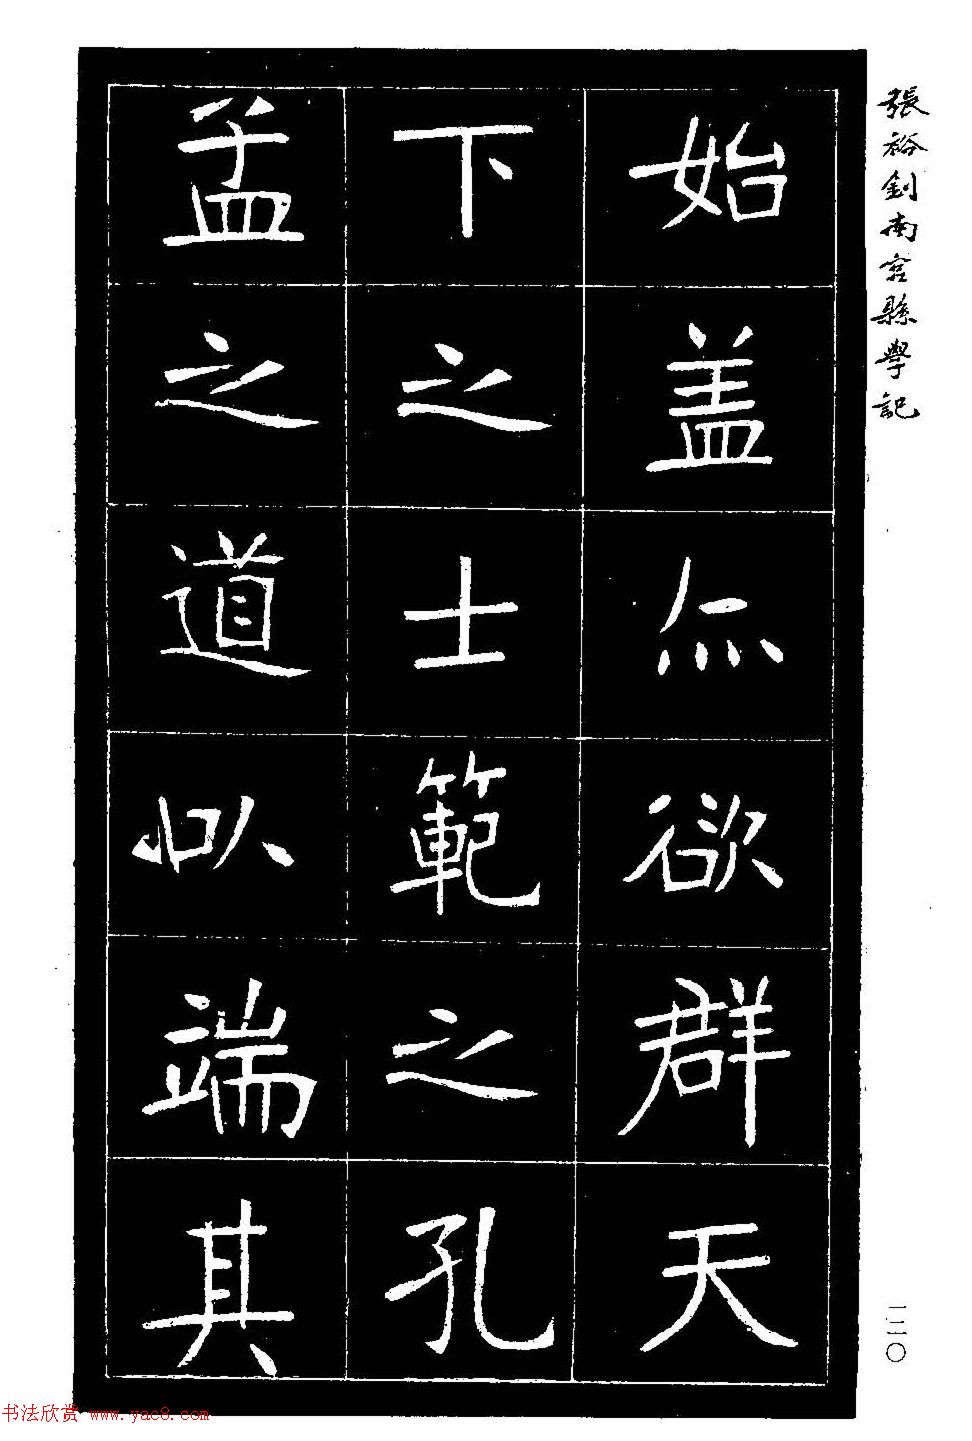 張裕釗南宮縣學記
始盖亦欲群天
下之士範之孔
孟之道以端其
一二〇
书法欣赏 www.yac8.com